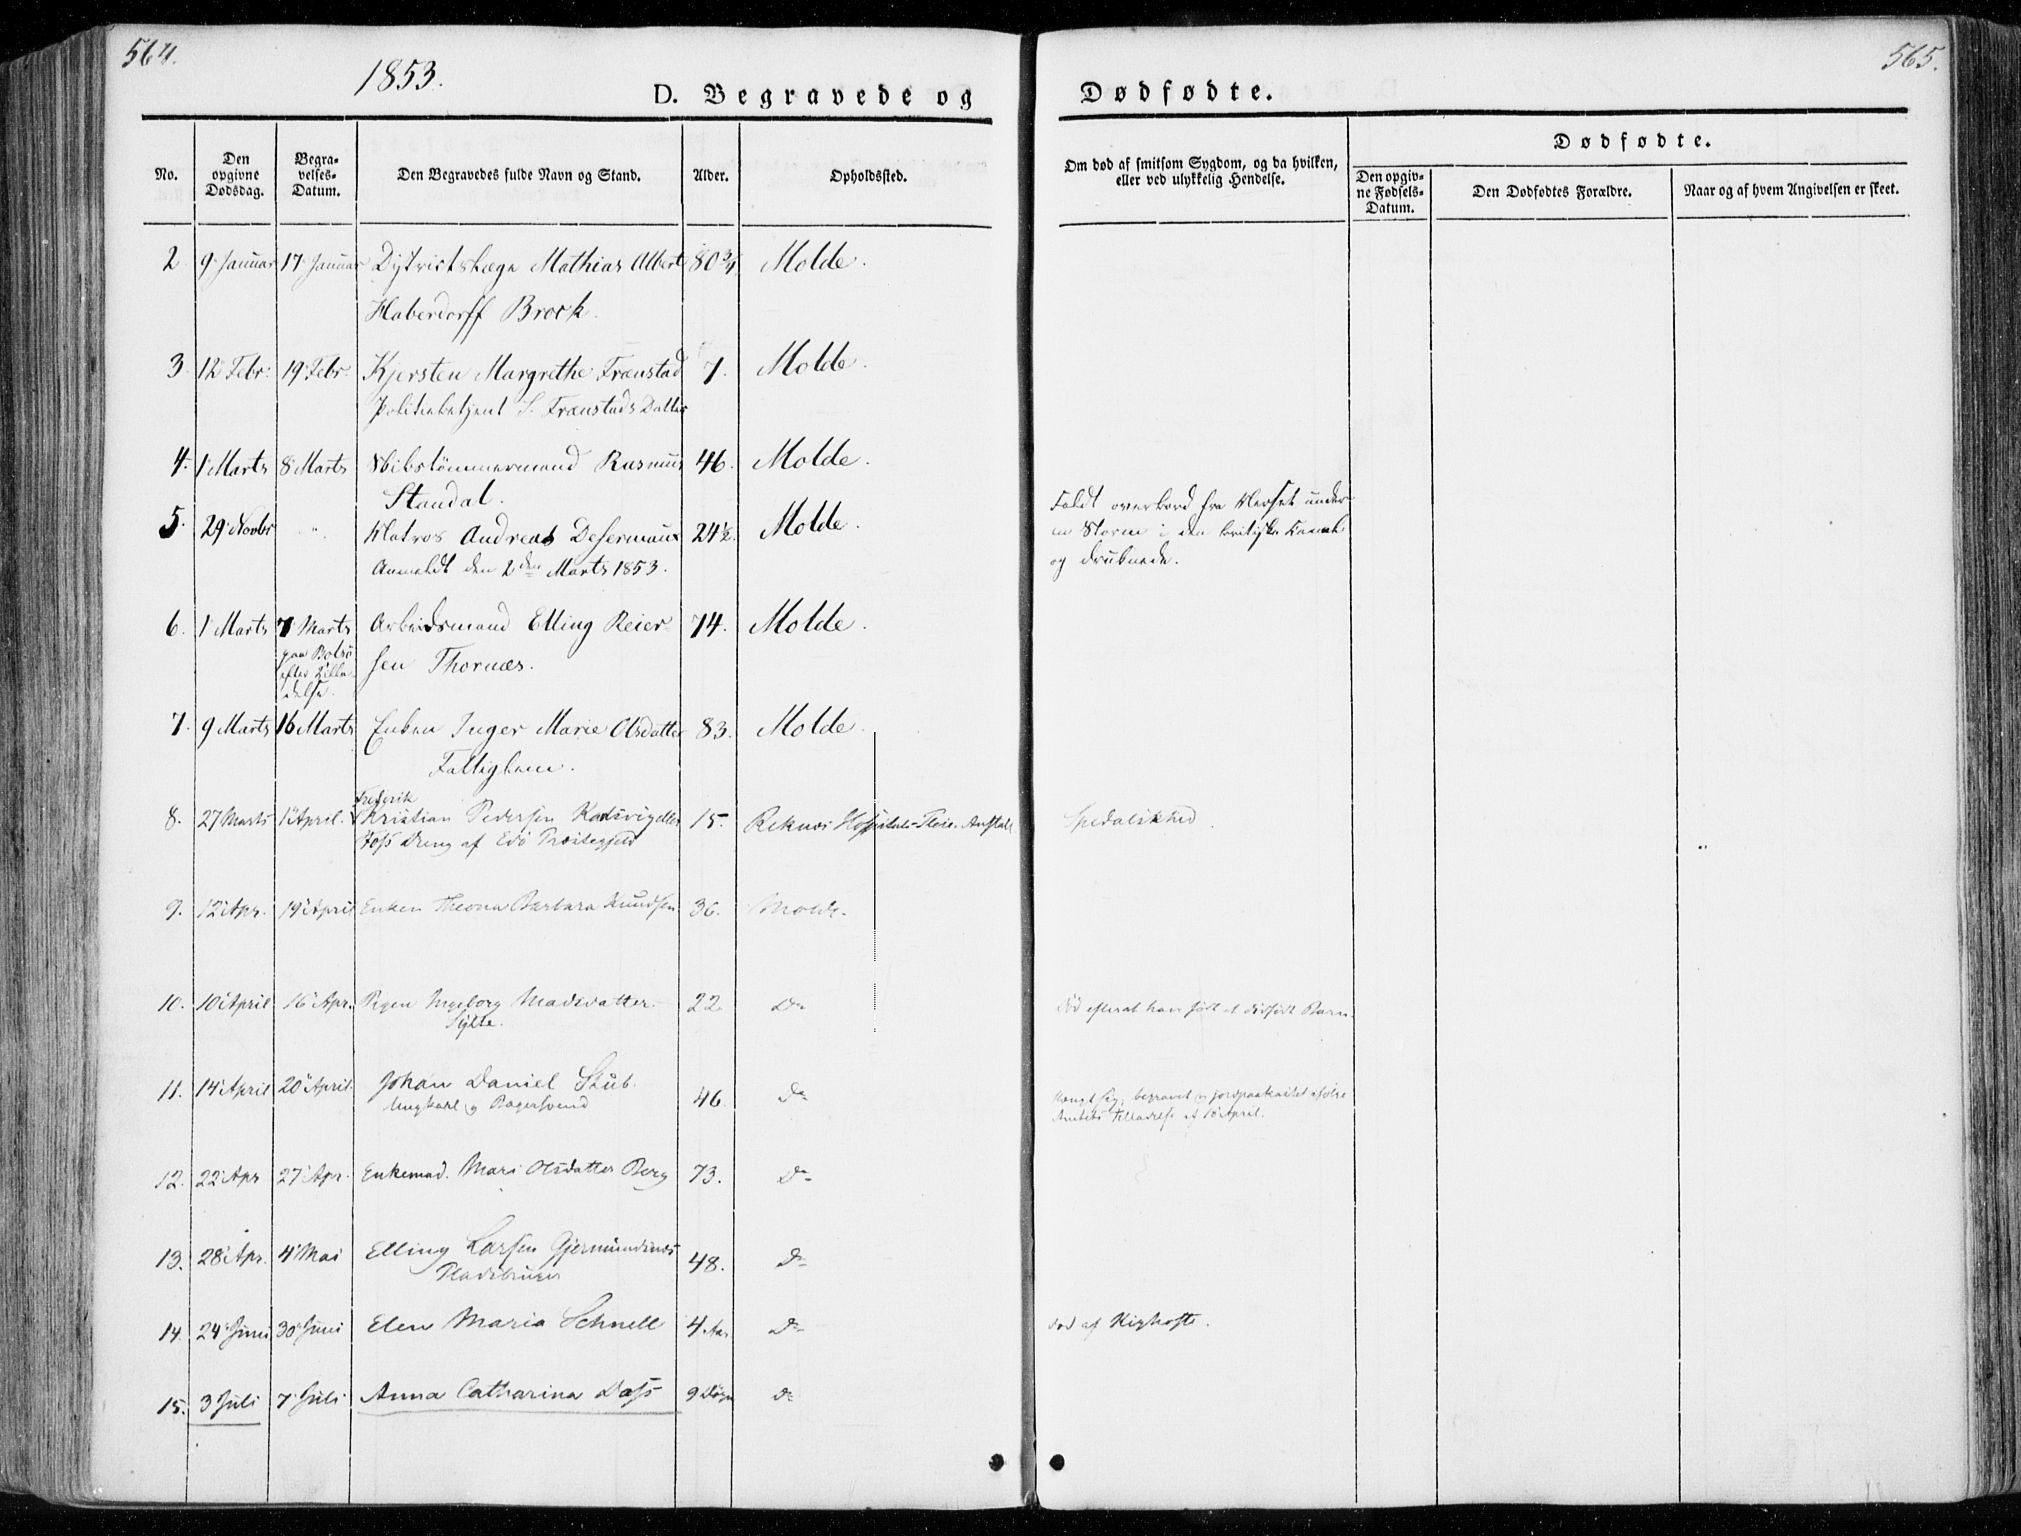 564.
565.
1853.
D. Begravede og
Dødfødte.
No.
Den opgivne Dødsdag.
Begravelses-Datum.
Den Begravedes fulde Navn og Stand.
Alder.
Opholdssted.
Om død af smitsom Sygdom, og da hvilken, eller ved ulykkelig Hendelse.
Dødfødte.
Den opgivne Fødsels-Datum.
Den Dødfødtes Forældre.
Naar og af hvem Angivelsen er skeet.
2 9 Januar 17 Januar Distriktslæge Mathias Albert 80 3/4 Molde.
Haberdorff Brock.
3 12 Febr: 19 Febr: Kjersten Margrethe Frænstad 7. Molde.
Politiebetjent S. Frænstads Datter
4. 1 Marts 8 Marts Skibstömmermand Rasmus 46. Molde.
Standal.
5. 29 Novbr " Matros Andreas Desermaux 24 1/2. Molde. Faldt overbord fra Skibet under
en Storm i den britiske Kanal
Anmeldt den 2den Marts 1853. og druknede.
6. 1 Marts 7 Marts Arbeidsmand Elling Reier- 74. Molde.
paa Bolsö
efter Tilla-
delse.
sen Thornæs.
7. 9 Marts 16 Marts Enken Inger Marie Olsdatter 83. Molde.
Fattiglem.
Frederik
8. 27 Marts 1 April. Kristian Pedersen 15. Reknæs Hospitals-Pleie-Anstalt Spedalskhed.
Dreng af Edö Præstegjeld
9. 12 Apr. 19 April Enken Theona Barbara Knudsen. 36. Molde.
10. 10 April 16 Apr. Pigen Ingeborg Madsdatter 22 Do Död efterat have födt et dödfödt Barn.
Hjelte.
11. 14 April 20 April. Johan Daniel Stub. 46. Do
Ungkarl og Bagersvend
Hængt sig; begravet og jordpaakastet ifølge
Amtets Tilladelse af 18 April.
12. 22 Apr 27 Apr. Enkemad. Mari Olsdatter Berg 73. Do
13. 28 Apr. 4 Mai Elling Larsen Gjermundnæs 48. Do
Pladsbruger
14. 24 Juni 30 Juni Elen Maria Schnell 4 Aar Do död af Kighoste.
15. 3 Juli 7 Juli Anna Catharina Dass 9 Døgn Do